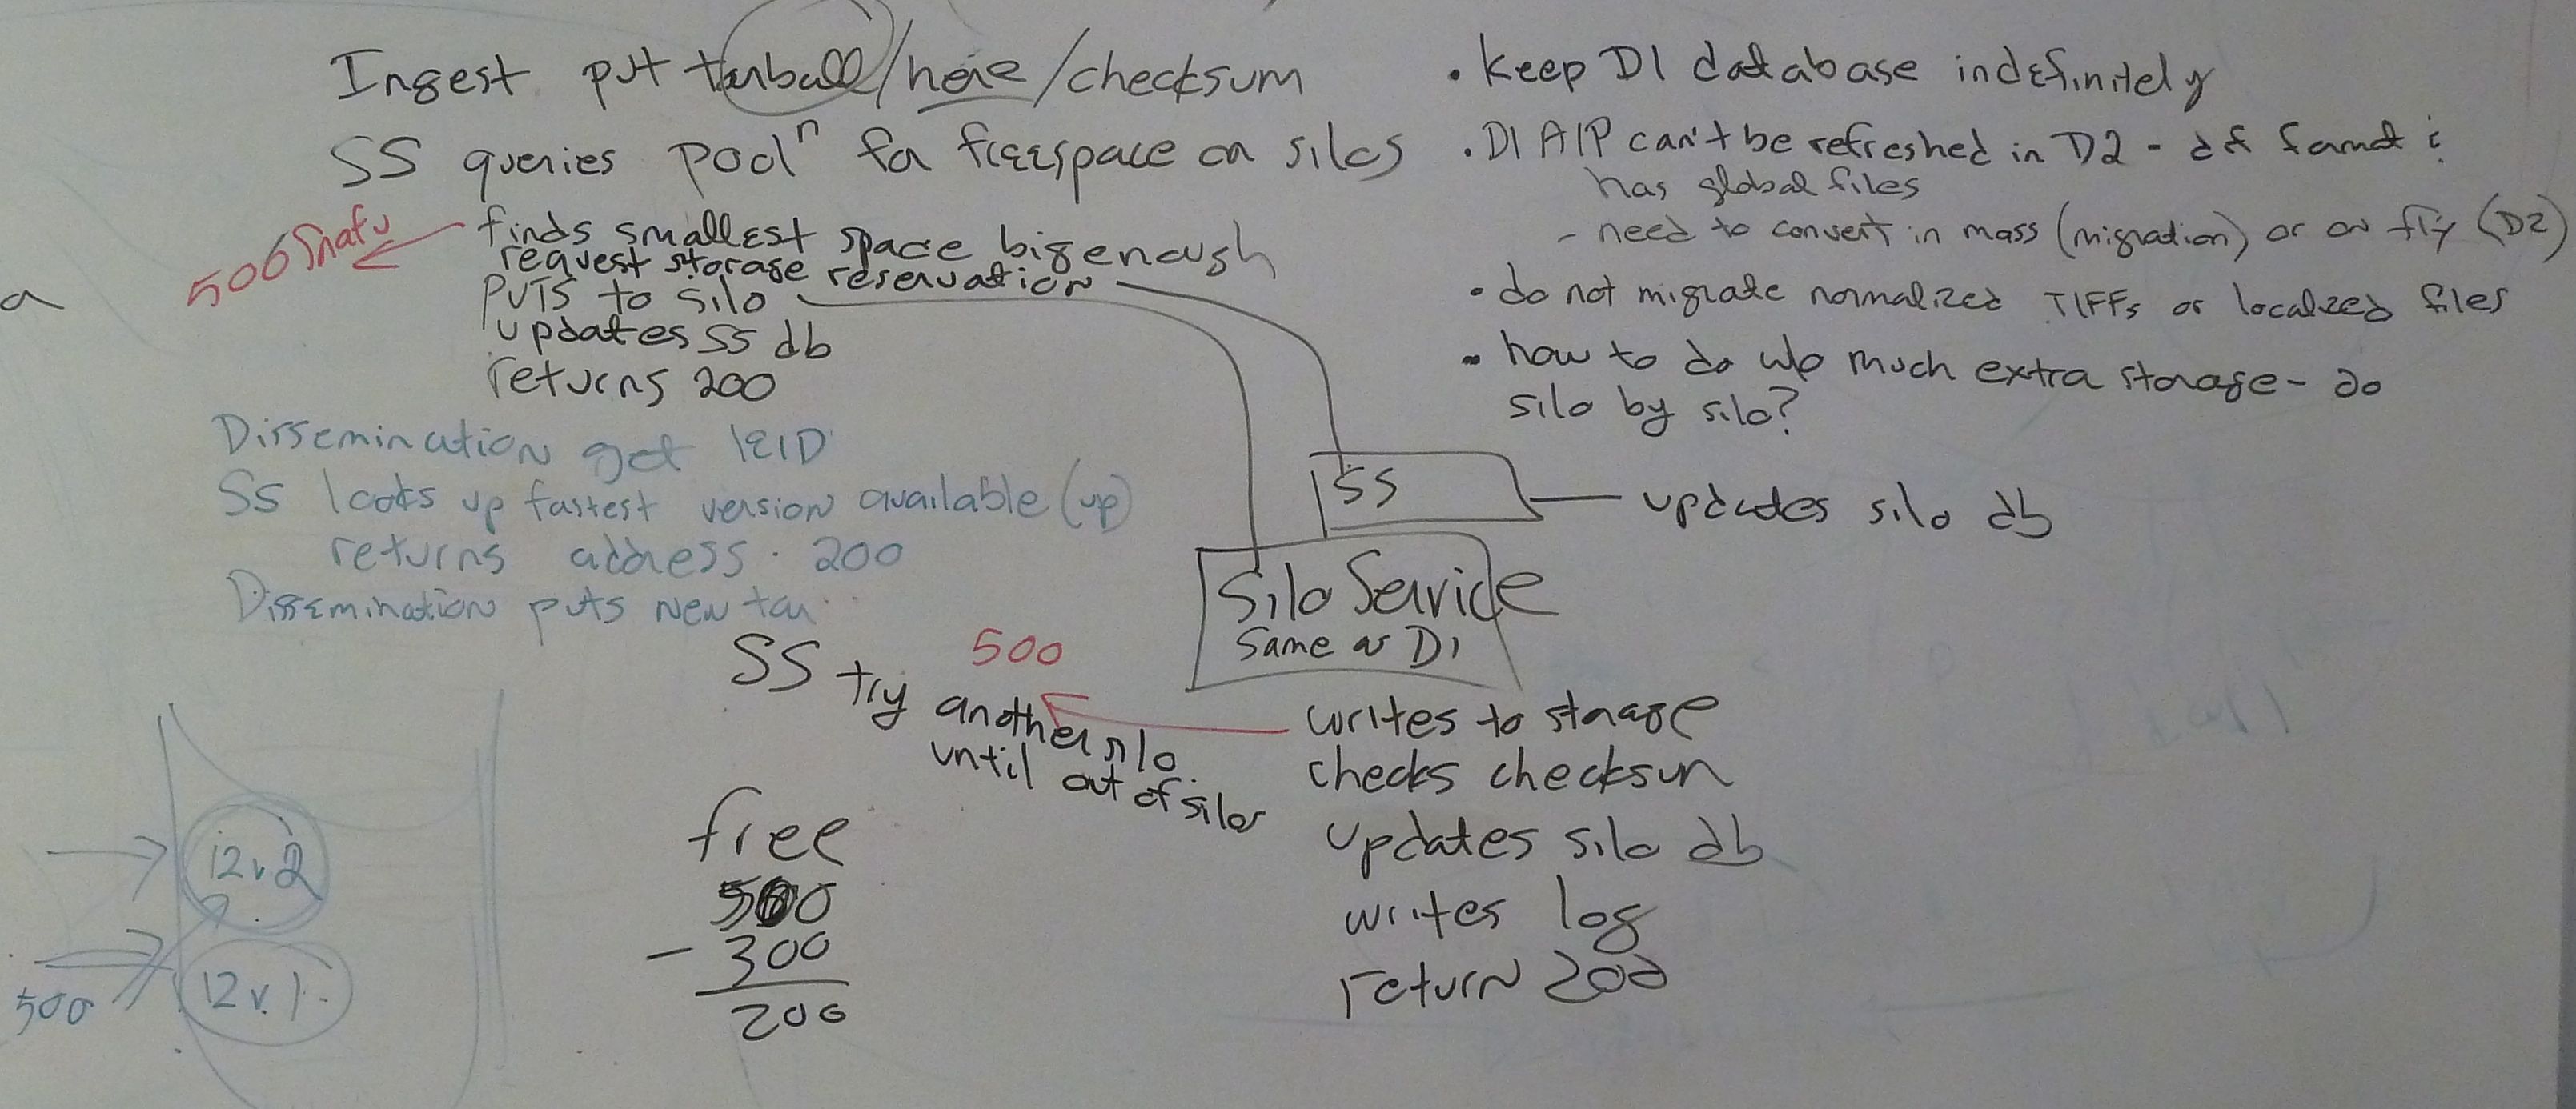 Ingest put tarball/here/checksum
SS queries pool^n for freespace on silos
finds smallest space big enough
request storage reservation
500 Snafu
PUTS to silo
updates SS db
returns 200
a
Dissemination get IEID
SS looks up fastest version available (up)
returns address. 200
Dissemination puts new tar
• keep D1 database indefinitely
• D1 AIP can't be refreshed in D2 - df format &
has global files
- need to convert in mass (migration) or on fly (D2)
• do not migrate normalized TIFFs or localized files
• how to do w/o much extra storage - do
silo by silo?
SS
updates silo db
Silo Service
Same as D1
SS try another silo
until out of silos
500
writes to storage
checks checksum
updates silo db
writes log
return 200
free
500
- 300
200
12v.2
12v.1
500